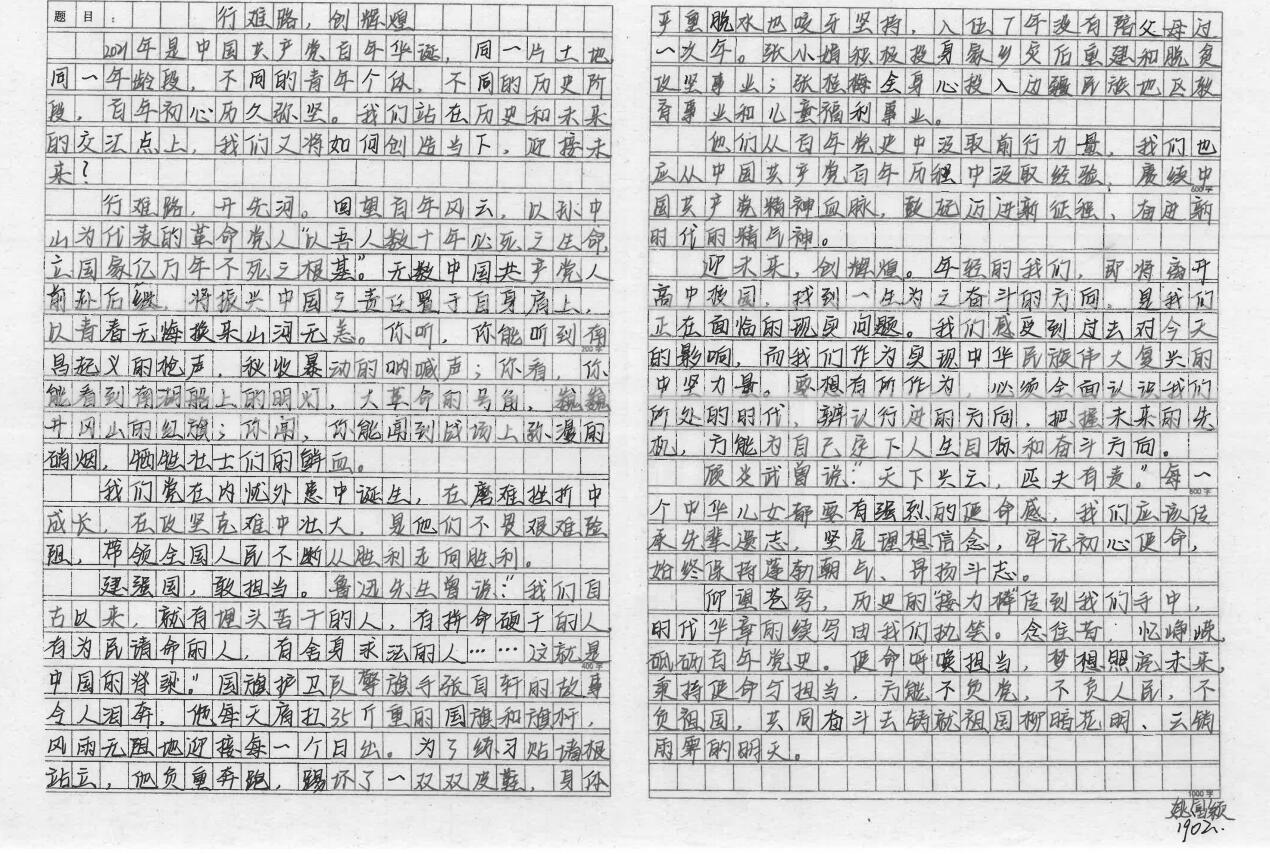 题 目： 行难路，创辉煌
2021年是中国共产党百年华诞，同一片土地
同一年龄段，不同的青年个体，不同的历史阶
段，百年初心历久弥坚。我们站在历史和未来
的交汇点上，我们又将如何创造当下，迎接未
来？
行难路，开先河。回望百年风云，以孙中
山为代表的革命党人“以吾人数十年必死之生命
立国家亿万年不死之根基”。无数中国共产党人
前赴后继，将振兴中国之责任置于自身肩上，
以青春无悔换来山河无恙。你听，你能听到南
200字
昌起义的枪声，秋收暴动的呐喊声；你看，你
能看到南湖船上的明灯，大革命的号角，巍巍
井冈山的红旗；你闻，你能闻到战场上弥漫的
硝烟，牺牲壮士们的鲜血。
我们党在内忧外患中诞生，在磨难挫折中
成长，在攻坚克难中壮大，是他们不畏艰难险
阻，带领全国人民不断从胜利走向胜利。
建强国，敢担当。鲁迅先生曾说：“我们自
古以来，就有埋头苦干的人，有拼命硬干的人
有为民请命的人，有舍身求法的人……这就是
400字
中国的脊梁。”国旗护卫队擎旗手张自轩的故事
令人泪奔，他每天肩扛35斤重的国旗和旗杆，
风雨无阻地迎接每一个日出。为了练习贴墙根
站立，他负重奔跑，踢坏了一双双皮鞋，身体
严重脱水也咬牙坚持，入伍7年没有陪父母过
一次年。张小娟积极投身家乡灾后重建和脱贫
攻坚事业；张桂梅全身心投入边疆民族地区教
育事业和儿童福利事业。
他们从百年党史中汲取前行力量，我们也
应从中国共产党百年历程中汲取经验，赓续中
600字
国共产党精神血脉，鼓起迈进新征程、奋进新
时代的精气神。
迎未来，创辉煌。年轻的我们，即将离开
高中校园，找到一生为之奋斗的方向，是我们
正在面临的现实问题。我们感受到过去对今天
的影响，而我们作为实现中华民族伟大复兴的
中坚力量。要想有所作为，必须全面认识我们
所处的时代，辨认行进的方向，把握未来的先
机，方能为自己定下人生目标和奋斗方向。
顾炎武曾说：“天下兴亡，匹夫有责”每一
800字
个中华儿女都要有强烈的使命感，我们应该传
承先辈遗志，坚定理想信念，牢记初心使命，
始终保持蓬勃朝气、昂扬斗志。
仰望苍穹，历史的“接力棒”传到我们手中，
时代华章的续写由我们执笔。念往昔，忆峥嵘，
砥砺百年党史。使命呼唤担当，梦想照亮未来，
秉持使命与担当，方能不负党，不负人民，不
负祖国，共同奋斗去铸就祖国柳暗花明、云销
雨霁的明天。
1000字
1902.